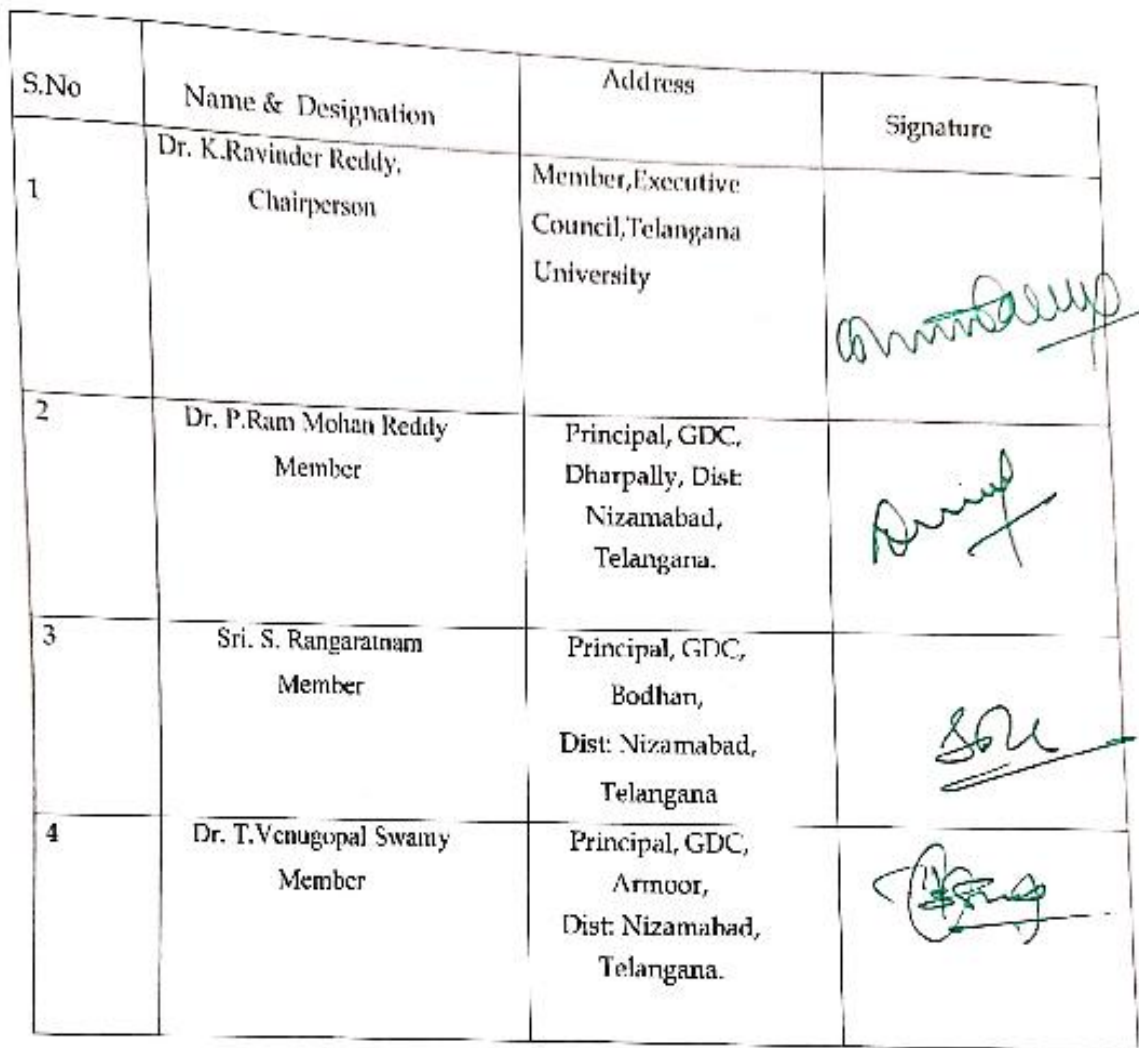 S.No
Name & Designation
Address
Signature
1
Dr. K.Ravinder Reddy,
Chairperson
Member,Executive
Council,Telangana
University
2
Dr. P.Ram Mohan Reddy
Member
Principal, GDC,
Dharpally, Dist:
Nizamabad,
Telangana.
3
Sri. S. Rangaratnam
Member
Principal, GDC,
Bodhan,
Dist: Nizamabad,
Telangana
4
Dr. T.Venugopal Swamy
Member
Principal, GDC,
Armoor,
Dist: Nizamabad,
Telangana.